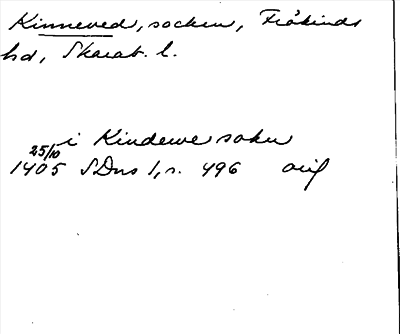 Kinneved, socken, Frökinds
hd, Skarab. l.
i Kindewe sokn
25/10
1405 SDns 1, s. 496 orig